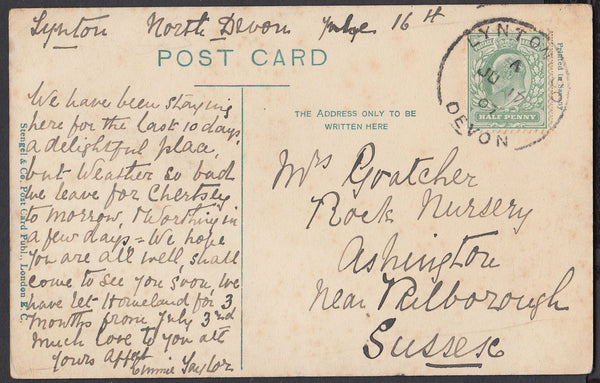 Lynton North Devon 16th
POST CARD
LYNTON
A
JU 17
07
DEVON
HALF PENNY
THE ADDRESS ONLY TO BE
WRITTEN HERE
We have been staying
here for the last 10 days
a delightful place,
but Weather so bad
we leave for Chertsey
to morrow, & Worthing in
a few days = We hope
you are all well, shall
come to see you soon, We
have let Homeland for 3
months from July 3rd
Much love to you all
yours affect
Taylor
Mrs Goatcher
Rock Nursery
Ashington
Near Pulborough
Sussex
Stengel & Co. Post Card Publ., London E. C.